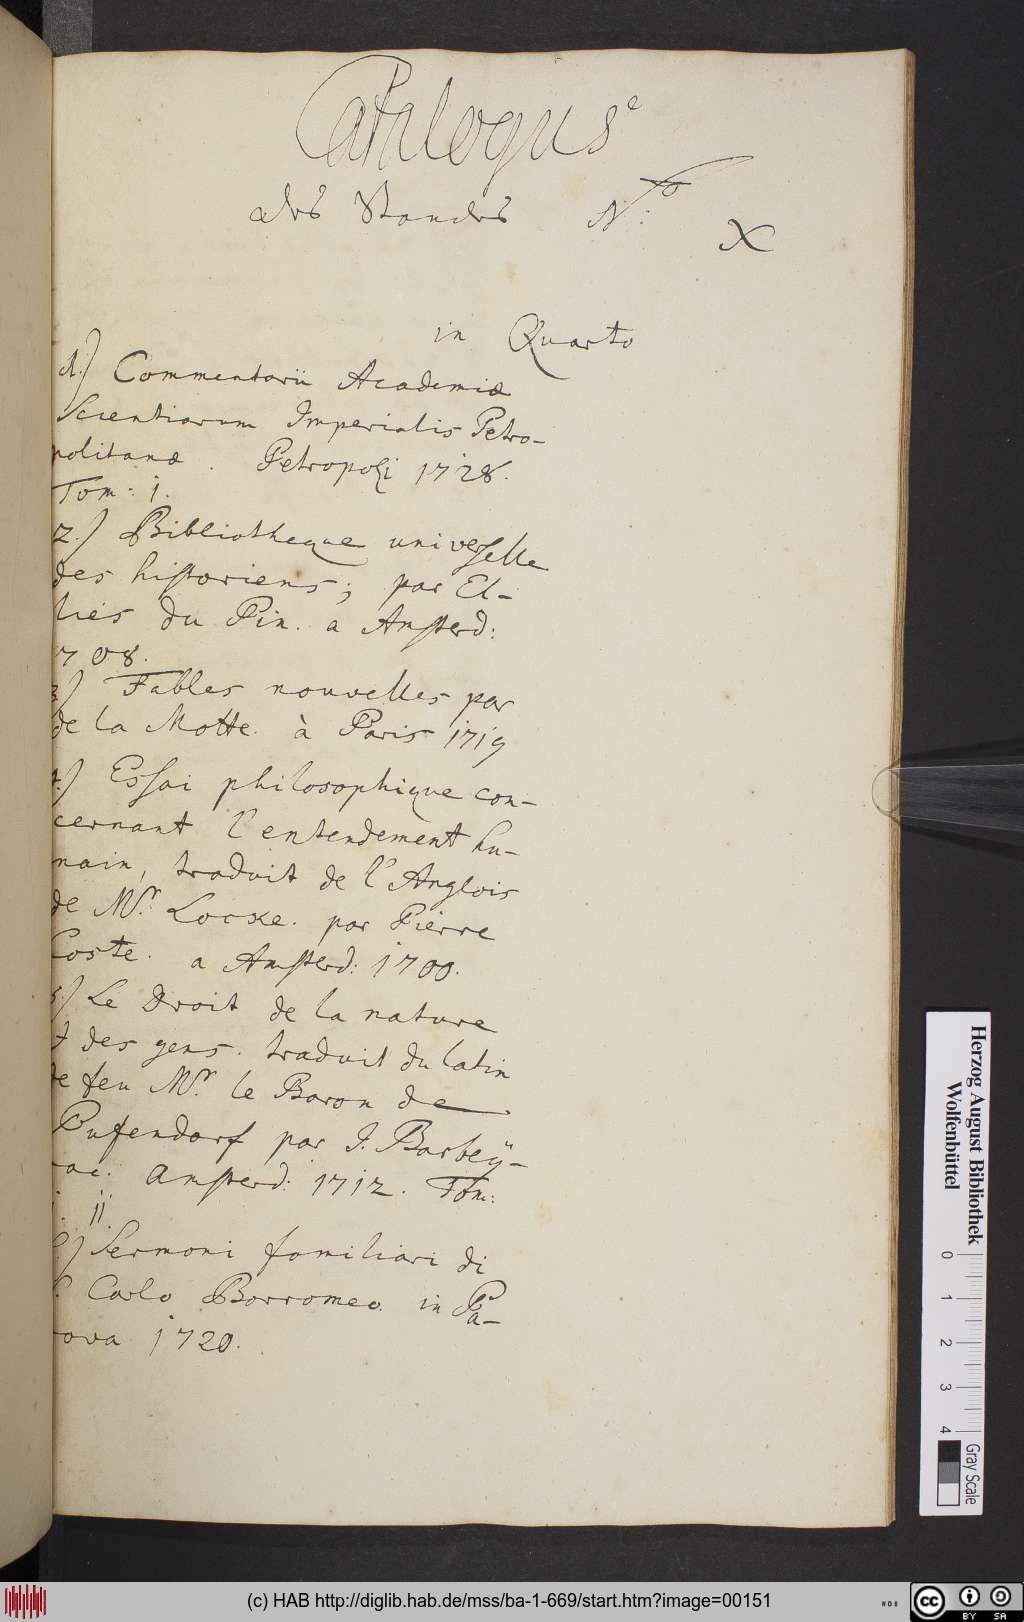 Catalogus
des Standes No: X
in Quarto
1.) Commentarii Academiæ
Scientiarum Imperialis Petro-
politanæ. Petropoli 1728.
Tom: 1.
2.) Bibliotheque universelle
des historiens; par El-
lies du Pin. a Amsterd:
1708.
3) Fables nouvelles par
de la Motte. à Paris 1719
4.) Essai philosophique con-
cernant l'entendement hu-
main, traduit de l'Anglois
de Mr. Locke. par Pierre
Coste. a Amsterd: 1700.
5.) Le Droit de la nature
et des gens. traduit du latin
de feu Mr. le Baron de
Pufendorf par J. Barbeÿ-
rac. Amsterd: 1712. Tom:
i. ii.
6.) Sermoni familiari di
S. Carlo Borromeo. in Pa-
dova 1720.
Herzog August Bibliothek
Wolfenbüttel
0 1 2 3 4
Gray Scale
(c) HAB http://diglib.hab.de/mss/ba-1-669/start.htm?image=00151
WDB
cc BY SA